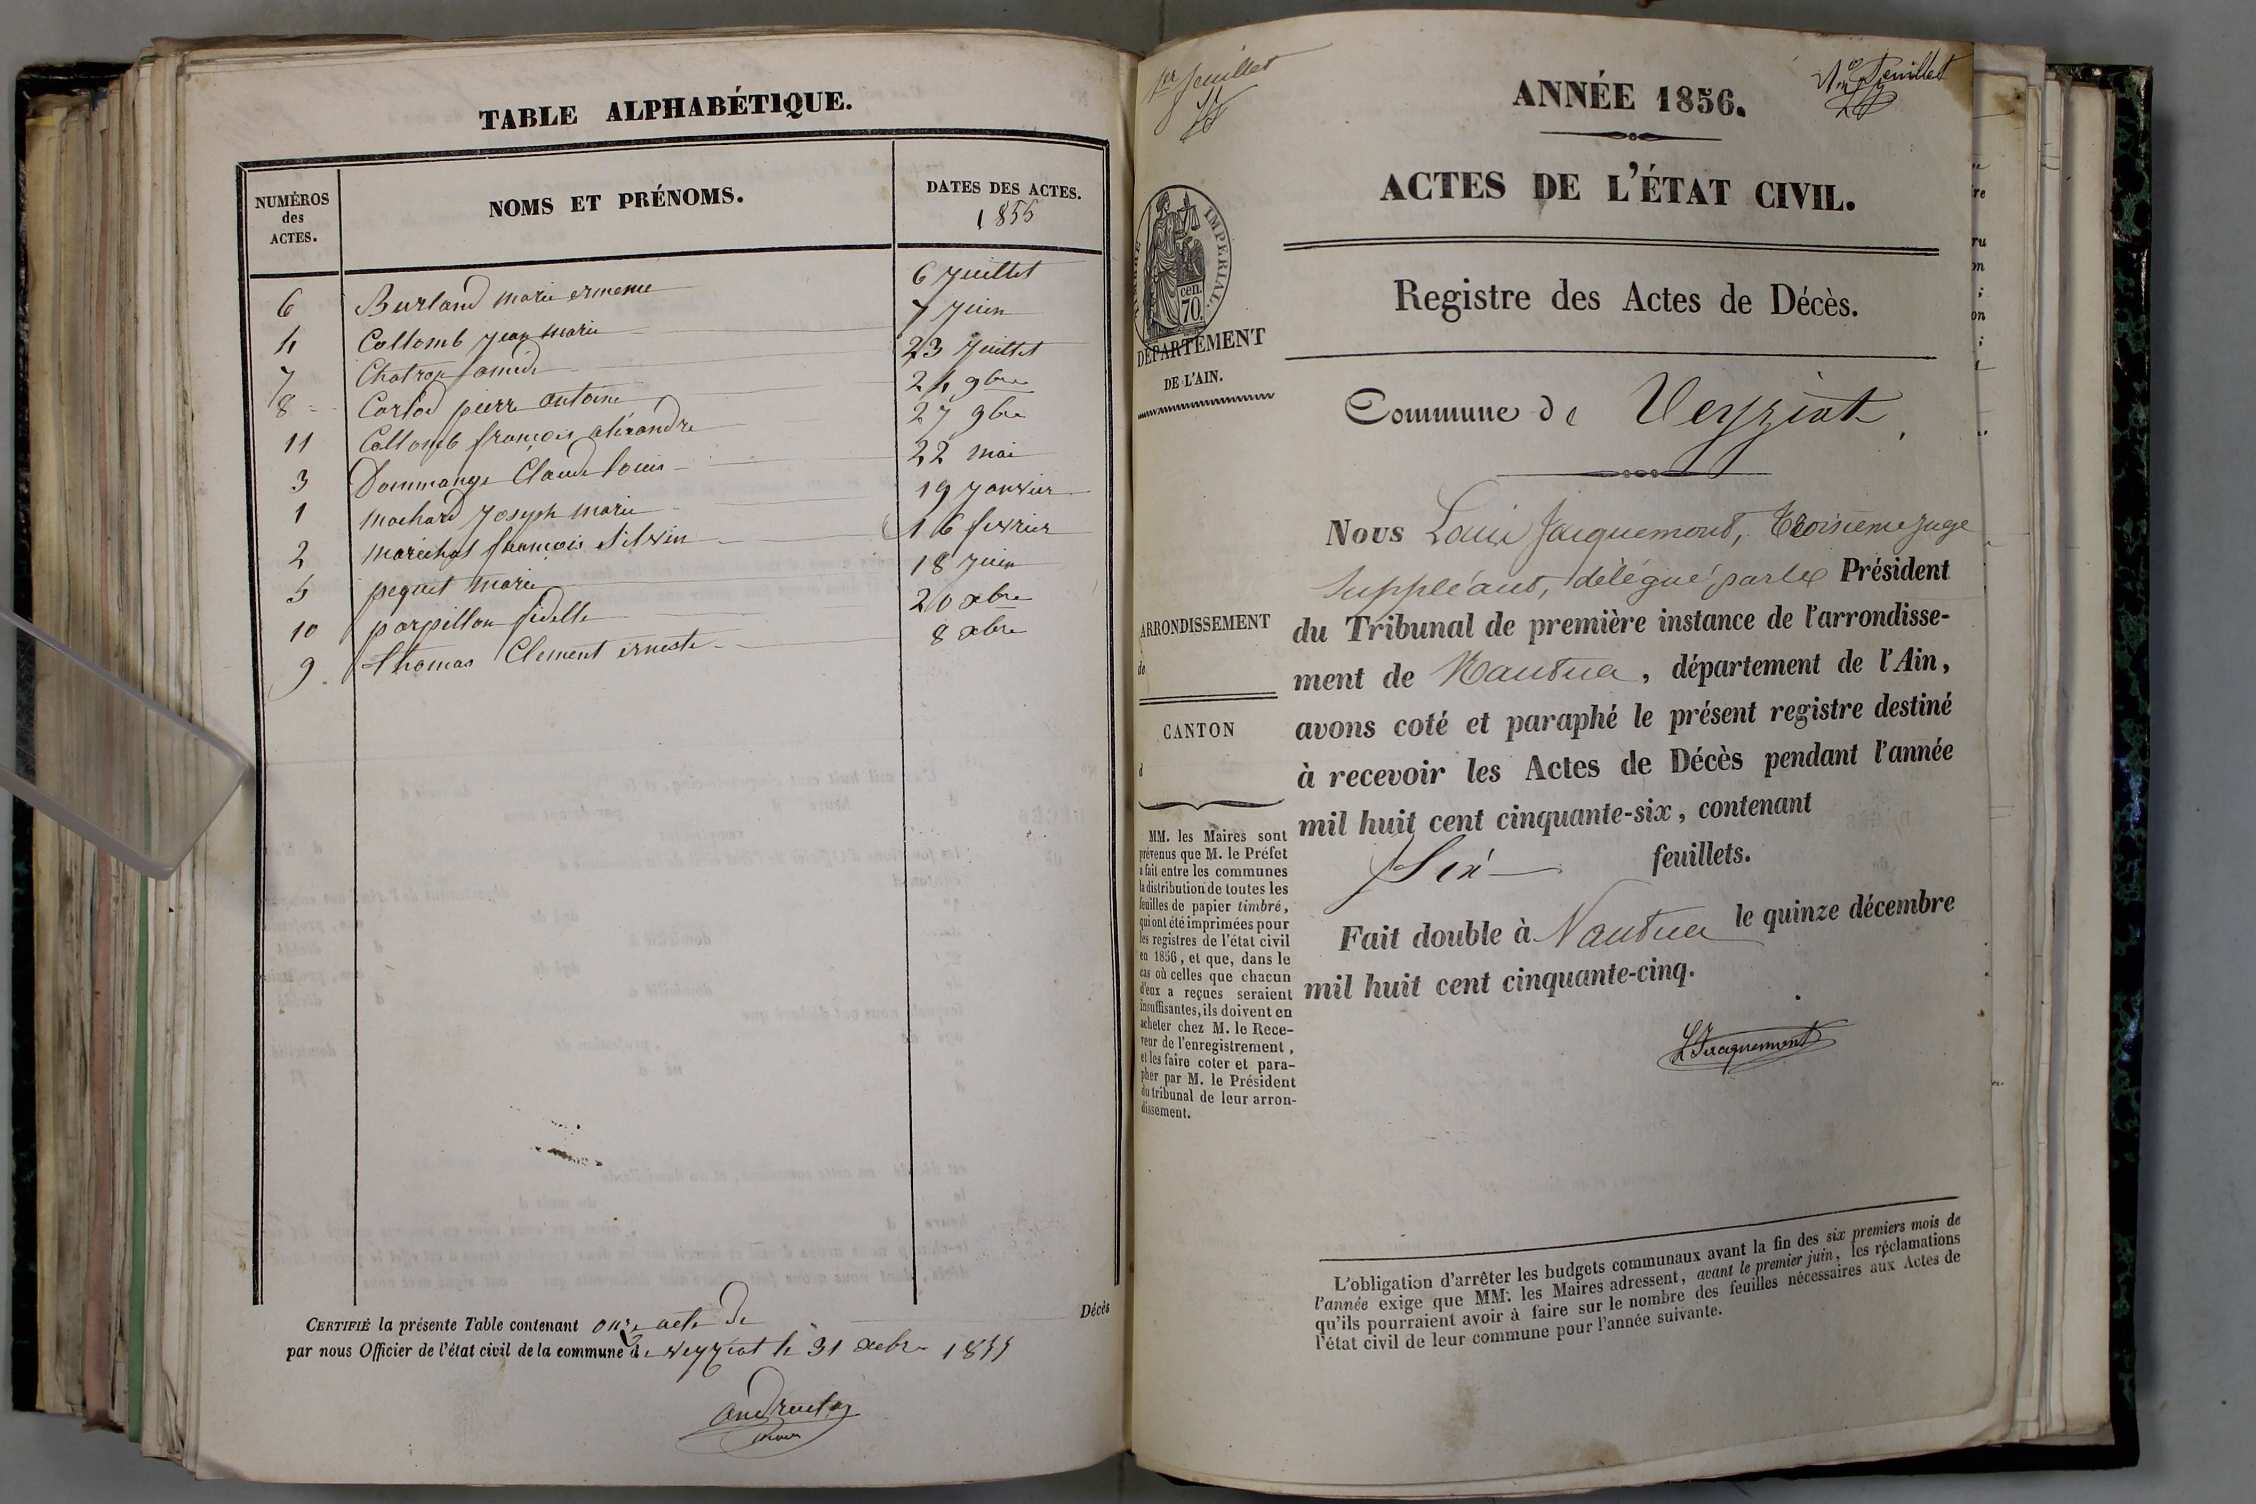 TABLE ALPHABÉTIQUE.
NUMÉROS
des
ACTES.
NOMS ET PRÉNOMS.
DATES DES ACTES.
1855
6 Burland marie ermenie 6 Juillet
4 Collomb Jean marie 7 Juin
7 Chatron 23 Juillet
8 Carlod pierre antoine 24 9bre
11 Collomb françois alexandre 27 9bre
3 Dommange Claude Louis 22 mai
1 machard Joseph marie 19 Janvier
2 maréchal françois Silvin 16 fevrier
5 pequet marie 18 Juin
10 parpillon fidelle 20 xbre
9 Thomas Clement erneste 8 xbre
CERTIFIÉ la présente Table contenant onze acte de Décès
par nous Officier de l'état civil de la commune de Veyziat le 31 xbre 1855
1er feuillet
ANNÉE 1856.
ACTES DE L'ÉTAT CIVIL.
TIMBRE IMPÉRIAL.
70 cen.
DÉPARTEMENT
DE L'AIN.
Registre des Actes de Décès.
Commune de Veyziat
Nous Louis Jacquemont, troisième juge
suppléant, délégué par le Président
du Tribunal de première instance de l'arrondisse-
ment de Nantua, département de l'Ain,
avons coté et paraphé le présent registre destiné
à recevoir les Actes de Décès pendant l'année
mil huit cent cinquante-six, contenant
Six feuillets.
Fait double à Nantua le quinze décembre
mil huit cent cinquante-cinq.
L Jacquemont
ARRONDISSEMENT
de
CANTON
d
MM. les Maires sont
prévenus que M. le Préfet
a fait entre les communes
la distribution de toutes les
feuilles de papier timbré,
qui ont été imprimées pour
les registres de l'état civil
en 1856, et que, dans le
cas où celles que chacun
d'eux a reçues seraient
insuffisantes, ils doivent en
acheter chez M. le Rece-
veur de l'enregistrement,
et les faire coter et para-
pher par M. le Président
du tribunal de leur arron-
dissement.
L'obligation d'arrêter les budgets communaux avant la fin des six premiers mois de
l'année exige que MM. les Maires adressent, avant le premier juin, les réclamations
qu'ils pourraient avoir à faire sur le nombre des feuilles nécessaires aux Actes de
l'état civil de leur commune pour l'année suivante.